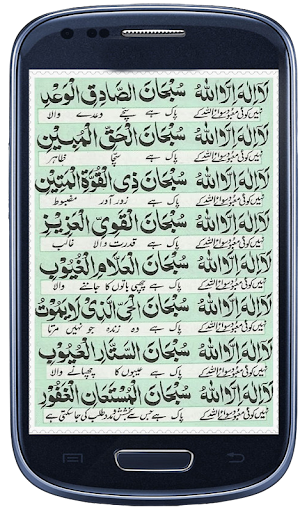 لَآ اِلٰهَ اِلَّا اللّٰهُ سُبْحَانَ الصَّادِقِ الْوَعْدِ
نہیں کوئی معبود سوائے اللہ کے پاک ہے سچے وعدے والا
لَآ اِلٰهَ اِلَّا اللّٰهُ سُبْحَانَ الْحَقِّ الْمُبِيْنِ
نہیں کوئی معبود سوائے اللہ کے پاک ہے سچا ظاہر
لَآ اِلٰهَ اِلَّا اللّٰهُ سُبْحَانَ ذِى الْقُوَّةِ الْمَتِيْنِ
نہیں کوئی معبود سوائے اللہ کے پاک ہے زور آور مضبوط
لَآ اِلٰهَ اِلَّا اللّٰهُ سُبْحَانَ الْقَوِىِّ الْعَزِيْزِ
نہیں کوئی معبود سوائے اللہ کے پاک ہے قدرت والا غالب
لَآ اِلٰهَ اِلَّا اللّٰهُ سُبْحَانَ الْعَلَّامِ الْغُيُوْبِ
نہیں کوئی معبود سوائے اللہ کے پاک ہے چھپی باتوں کا جاننے والا
لَآ اِلٰهَ اِلَّا اللّٰهُ سُبْحَانَ الْحَىِّ الَّذِىْ لَا يَمُوْتُ
نہیں کوئی معبود سوائے اللہ کے پاک ہے وہ زندہ جو نہیں مرتا
لَآ اِلٰهَ اِلَّا اللّٰهُ سُبْحَانَ السَّتَّارِ الْعُيُوْبِ
نہیں کوئی معبود سوائے اللہ کے پاک ہے عیبوں کا چھپانے والا
لَآ اِلٰهَ اِلَّا اللّٰهُ سُبْحَانَ الْمُسْتَعَانِ الْغَفُوْرِ
نہیں کوئی معبود سوائے اللہ کے پاک ہے جس سے بخشش و مدد طلب کی جا سکتی ہے